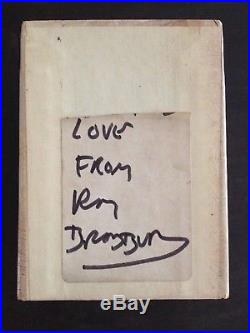 LOVE
FROM
RAY
BRADBURY